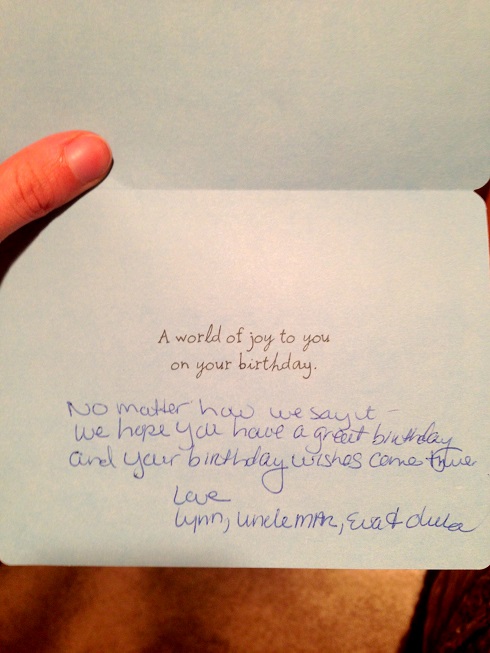 A world of joy to you
on your birthday.
No matter how we say it –
we hope you have a great birthday
and your birthday wishes come true
Love
Lynn, Uncle Mark, Eva &